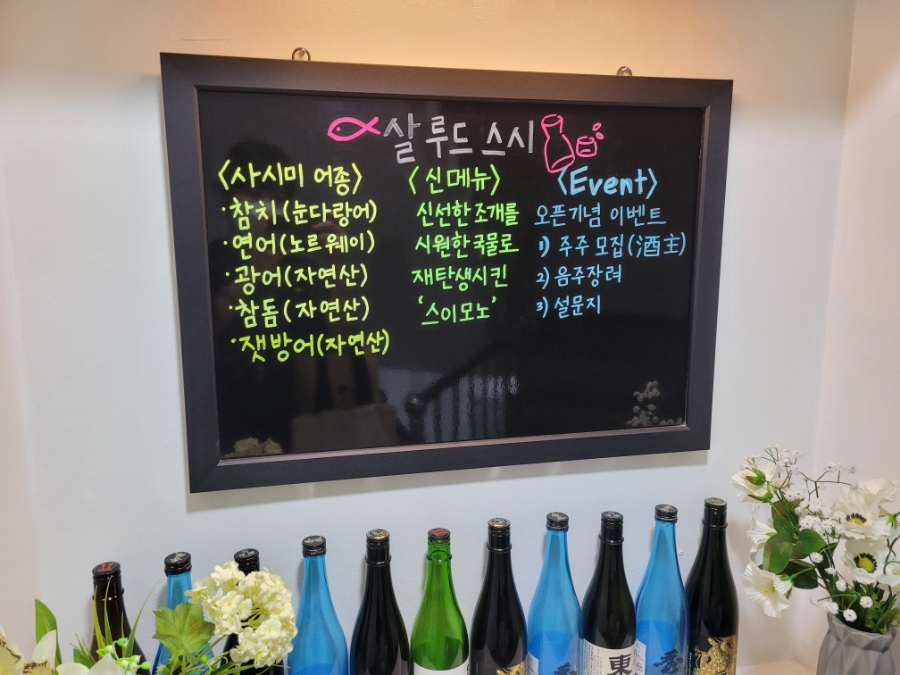 살루드 스시
<사시미 어종>
·참치(눈다랑어)
·연어(노르웨이)
·광어(자연산)
·참돔(자연산)
·잿방어(자연산)
<신메뉴>
신선한 조개를
시원한 국물로
재탄생시킨
'스이모노'
<Event>
오픈기념 이벤트
1) 주주 모집(酒主)
2) 음주장려
3) 설문지
東